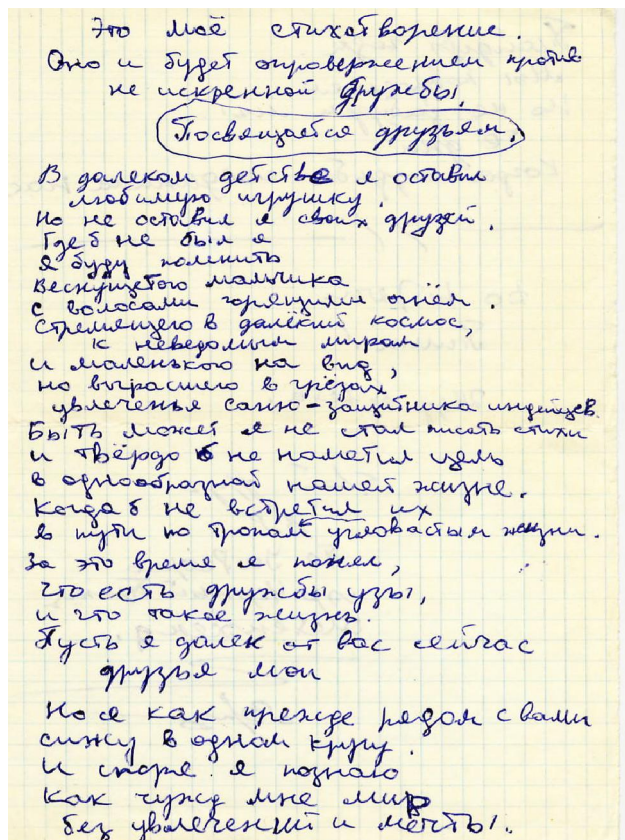 Это моё стихотворение.
Оно и будет опровержением против
не искренной дружбы.
Посвящается друзьям.
В далеком детстве я оставил
любимую игрушку.
Но не оставил я своих друзей.
Где б не был я
я буду помнить
веснущетого мальчика
с волосами горящими огнём.
Стремящего в далёкий космос,
к неведомым мирам
и маленького на вид,
но выросшего в грёзах
увлеченья саню-защитника индейцев.
Быть может я не стал писать стихи
и твёрдо б не наметил цель
в однообразной нашей жизне.
Когда б не встретил их
в пути по тропам угловастым жизни.
За это время я понял,
что есть дружбы узы,
и что такое жизнь.
Пусть я далек от вас сейчас
друзья мои
Но я как прежде рядом с вами
сижу в одном кругу.
И споря я познаю
как чужд мне мир
без увлечений и мечты.